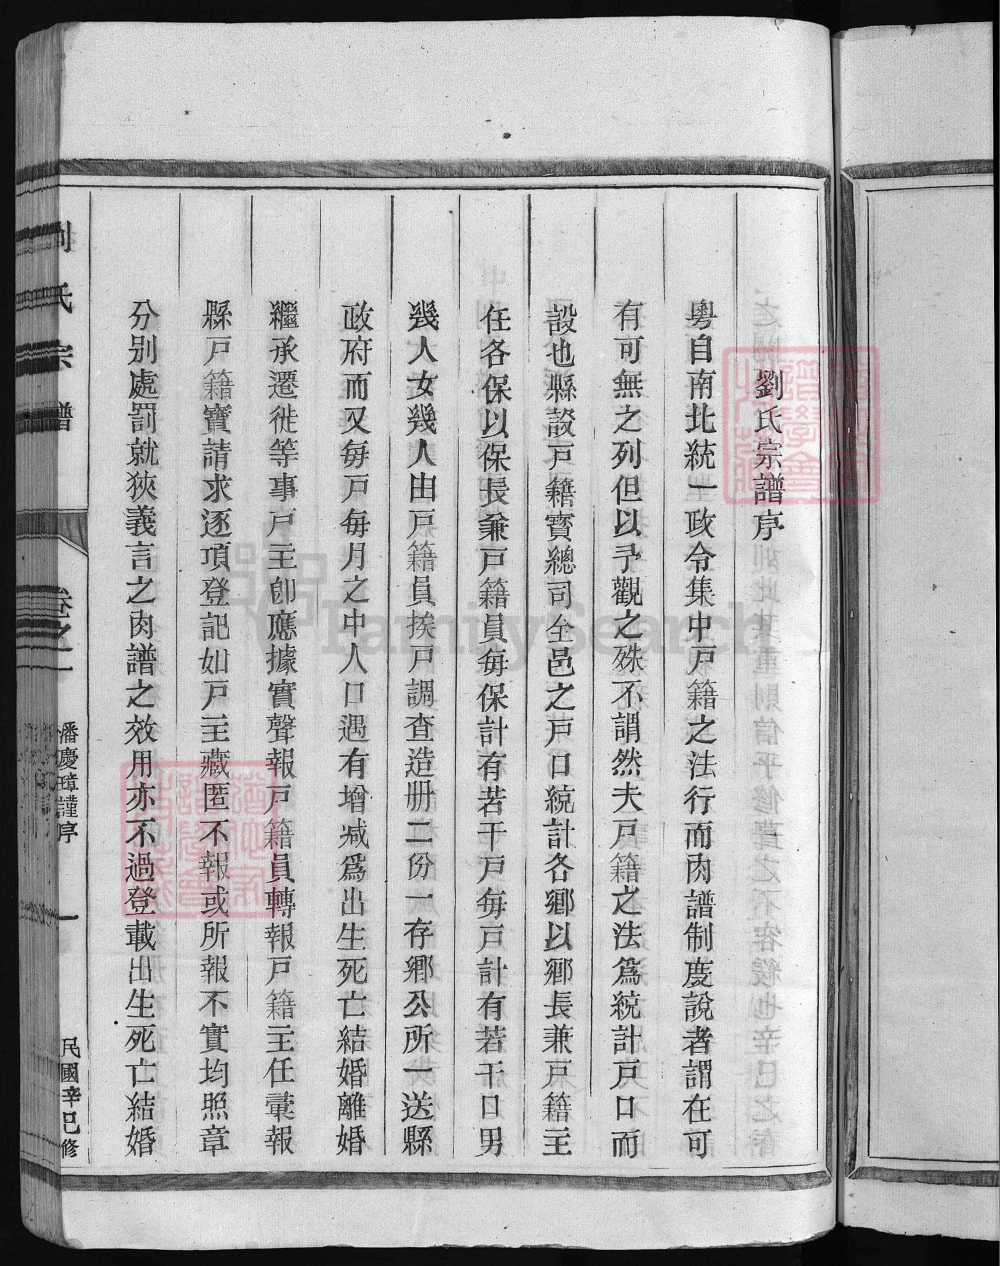 劉氏宗譜序
粵自南北統一政令集中戸籍之法行而肉譜制度說者謂在可
有可無之列但以予觀之殊不謂然夫戸籍之法爲統計戸口而
設也縣設戸籍寳總司全邑之戸口統計各鄉以鄉長兼戸籍主
任各保以保長兼戸籍員每保計有若干戸每戸計有若干口男
幾人女幾人由戸籍員挨戸調查造册二份一存鄉公所一送縣
政府而又每戸每月之中人口遇有增减爲出生死亡結婚離婚
繼承遷徙等事戸主卽應據實聲報戸籍員轉報戸籍主任彙報
縣戸籍寳請求逐項登記如戸主藏匿不報或所報不實均照章
分别處罰就狹義言之肉譜之效用亦不過登載出生死亡結婚
劉氏宗譜
卷之一
潘慶璋謹序
一
民國辛巳修
FamilySearch